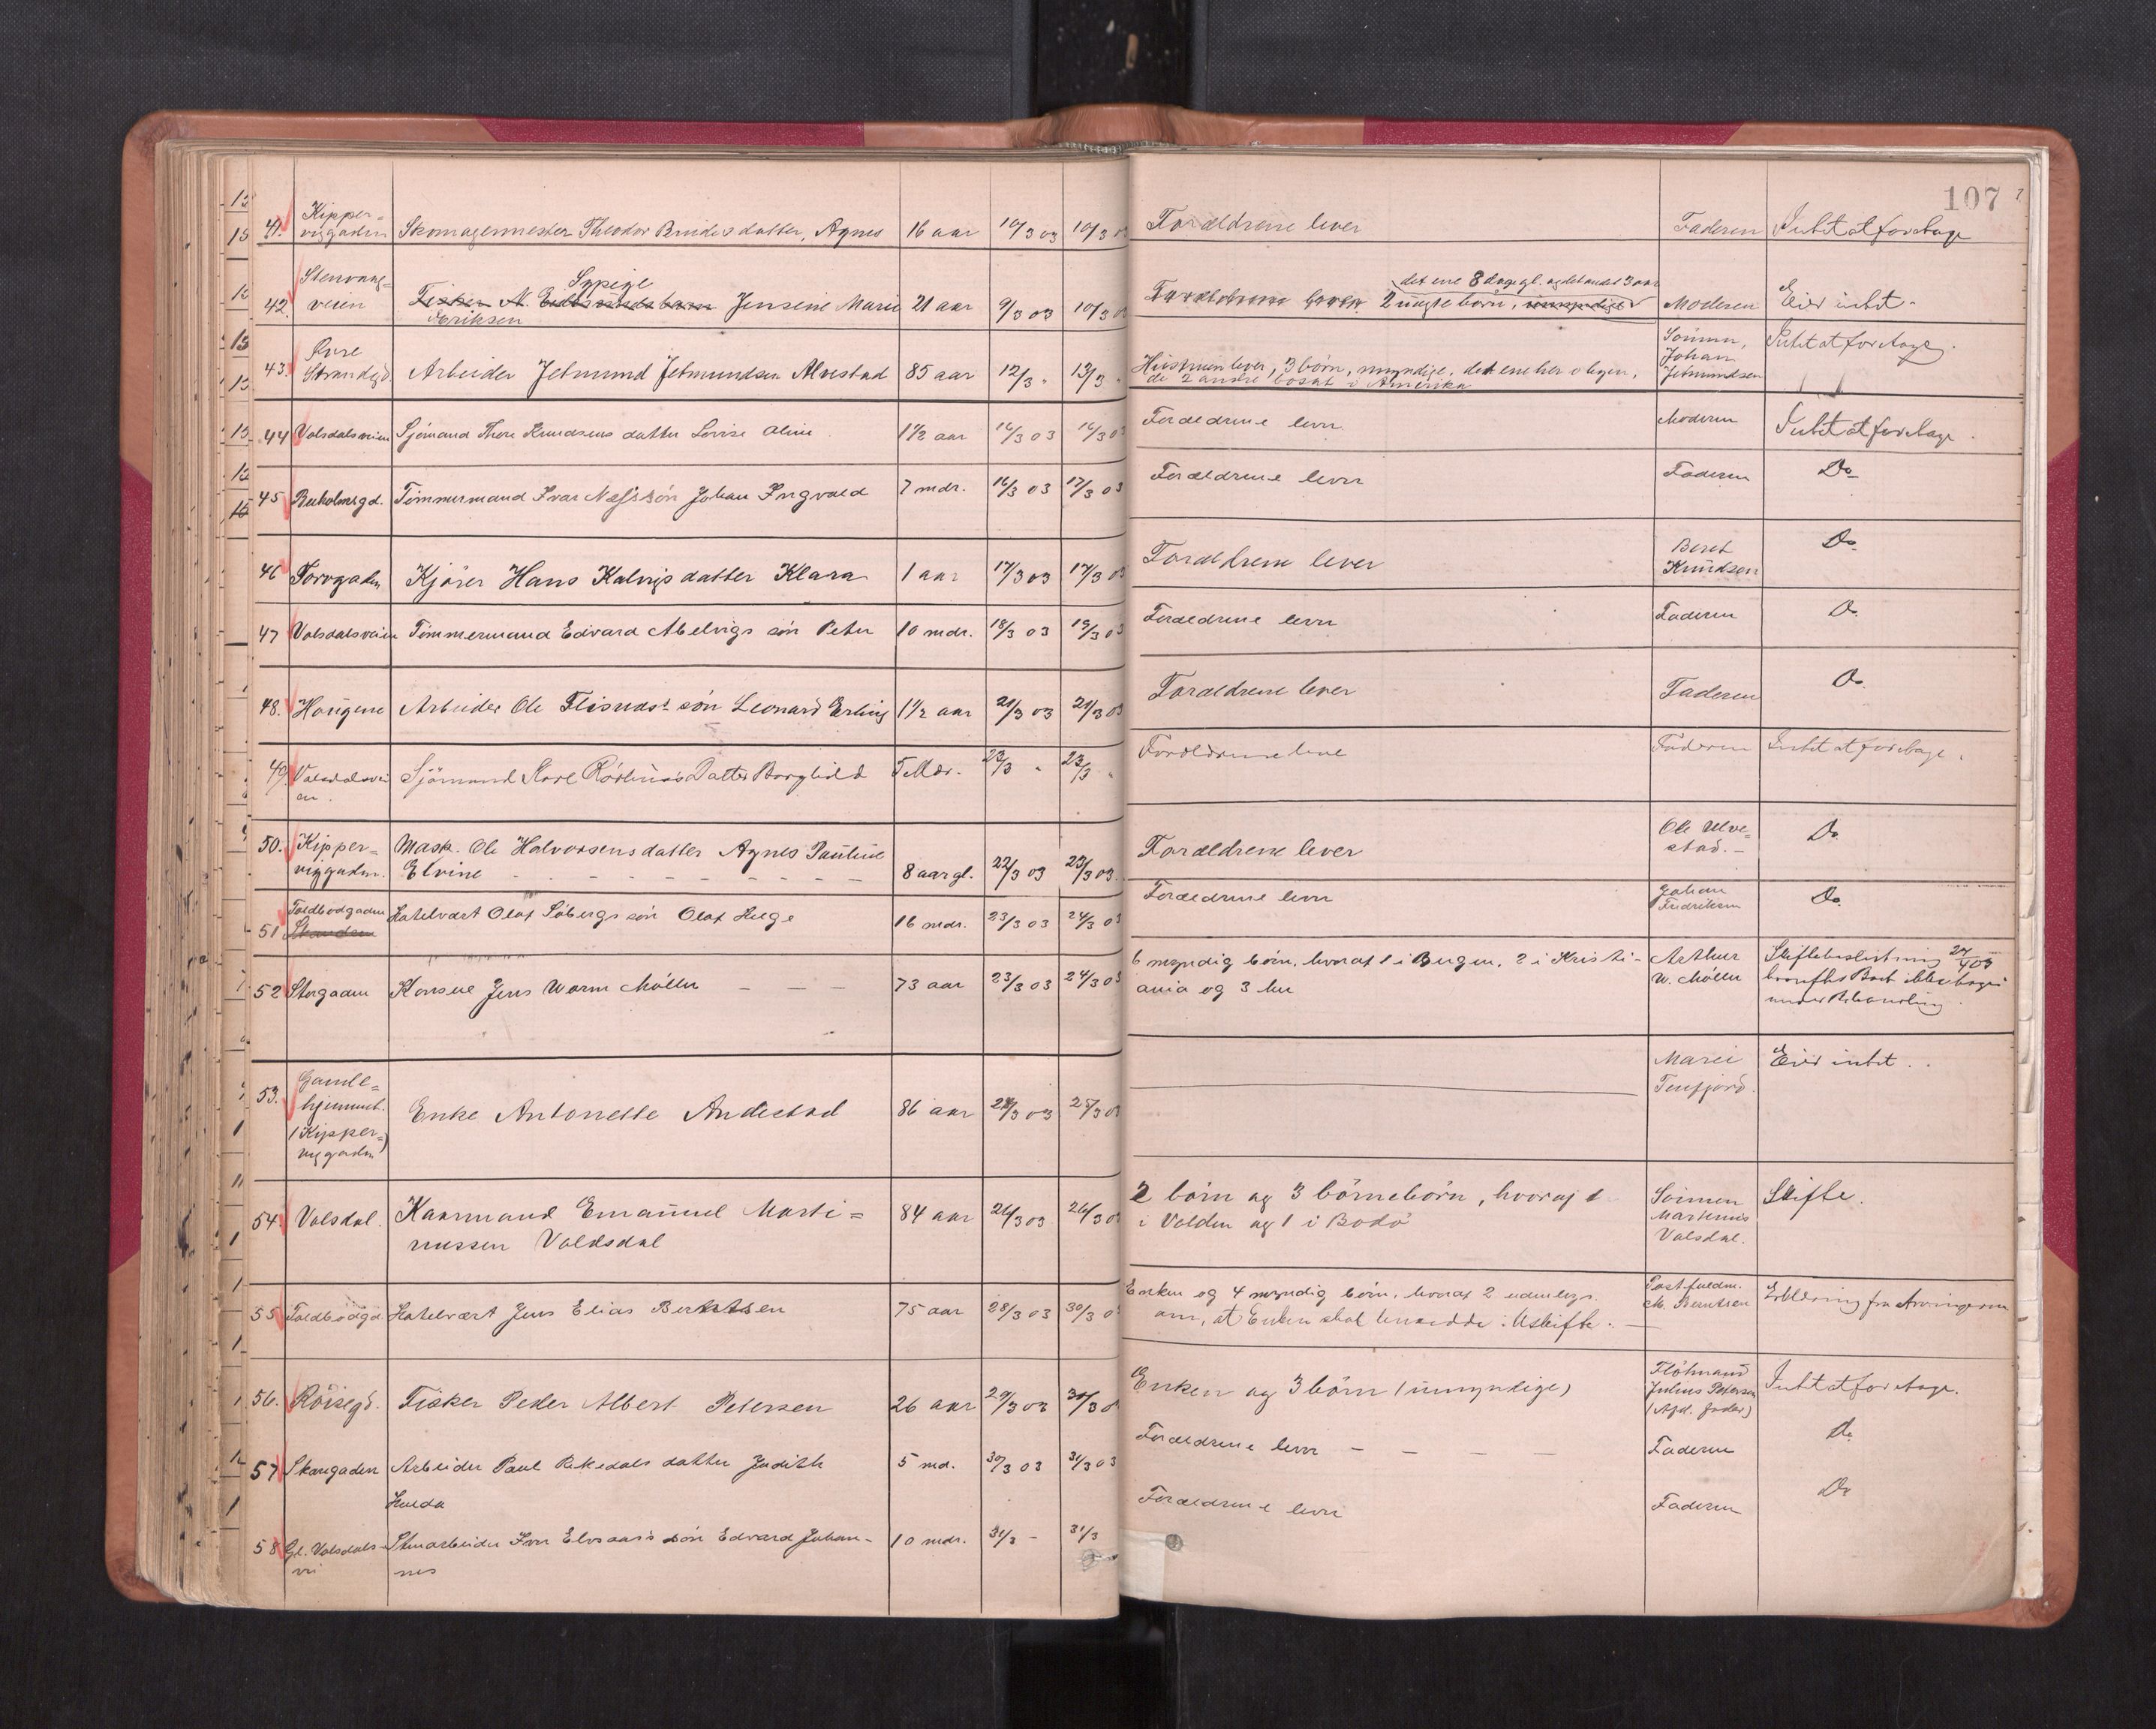 107
41. Kipper=
viggaden Skomagermester Theodor Brudes datter, Agnes 16 aar 10/3 03 10/3 03 Forældrene lever Faderen Intet at foretage
42. Stenvaag=
veien Sypige
Fisker A. Jensine Marie 21 aar 9/3 03 10/3 03
Eriksen
det ene 8 dage gl. og det andet 3 aar
2 uægte børn, umyndige Moderen Eier intet.
43. Øvre
Strandgd. Arbeider Jetmund Jetmundsen Alvestad 85 aar 12/3 " 13/3 "
Hustruen lever, 3 börn, myndige, det ene her i byen,
de 2 andre bosat i Amerika Sönnen,
Johan
Jetmundsen Intet at foretage.
44 Volsdalsveien Sjömand Thore Knudsens datter Lovise Oline 1 1/2 aar 16/3 03 16/3 03 Forældrene lever Moderen Intet at foretage.
45 Buholmsgd. Tömmermand Ivar Næss sön Johan Ingvald 7 mdr. 16/3 03 17/3 03 Forældrene lever Faderen Do
46 Torvgaden Kjörer Hans Kalvigs datter Klara 1 aar 17/3 03 17/3 03 Forældrene lever Beret
Knudsen Do
47 Volsdalsveien Tömmermand Edvard Abelvigs sön Peter 10 mdr. 18/3 03 19/3 03 Forældrene lever Faderen Do
48. Haugene Arbeider Ole Flisnds. sön Leonard Erling 1 1/2 aar 21/3 03 21/3 03 Forældrene lever Faderen Do
49. Volsdalsvei
en. Sjömand Karl Datter Borghild 5 Mdr. 23/3 " 23/3 " Forældrene leve Faderen Intet at foretage.
50. Kipper=
viggaden. Mask. Ole Halvorsens datter Agnes Pauline
Elvine 8 aar gl. 22/3 03 23/3 03. Forældrene lever Ole Ulve=
stad. Do
51 Toldbodgaden
Hotelvært Olaf Söbergs sön Olaf Helge 16 mdr. 23/3 03 24/3 03 Forældrene lever Johan
Fredriksen Do
52 Storgaden Konsul Jens Worm Möller 73 aar 23/3 03 24/3 03
6 myndig börn, hvoraf 1 i Bergen, 2 i Kristi-
ania og 3 her Arthur
W. Möller Skiftebeslutning 27/4 03
hvorefter Boet ikke tages
under Behandling.
53. Gamle=
hjemmet.
(Kipper=
viggaden) Enke Antonette Andestad 86 aar 24/3 03 25/3 03 Marie
Tenfjord. Eier intet.
54. Volsdal. Kaarmand Emanuel Marti=
nussen Voldsdal 84 aar 26/3 03 26/3 03
2 börn og 3 börnebörn, hvoraf 1
i Volden og 1 i Bodö Sönnen
Martinus
Volsdal. Skifte.
55 Toldbodgd. Hotelvært Jens Elias Berntsen 75 aar 28/3 03 30/3 03
Enken og 4 myndig börn, hvoraf 2 udenbys.
om, at Enken skal hensidde i Uskifte. Postfuldm.
M. Berntsen Erklæring fra Arvingerne
56. Röisegd. Fisker Peder Albert Petersen 26 aar 29/3 03 31/3 03 Enken og 3 börn (umyndige) Flötmand
Julius Petersen
(Afd. fader) Intet at foretage.
57 Skaregaden Arbeider Paul Rekdals datter Judith
Hulda 5 md. 30/3 03 31/3 03 Forældrene lever Faderen Do
58 Gl. Volsdals-
vei Stenarbeider Iver Elvsaas's sön Edvard Johan-
nes 10 mdr. 31/3 - 31/3 Forældrene lever Faderen Do